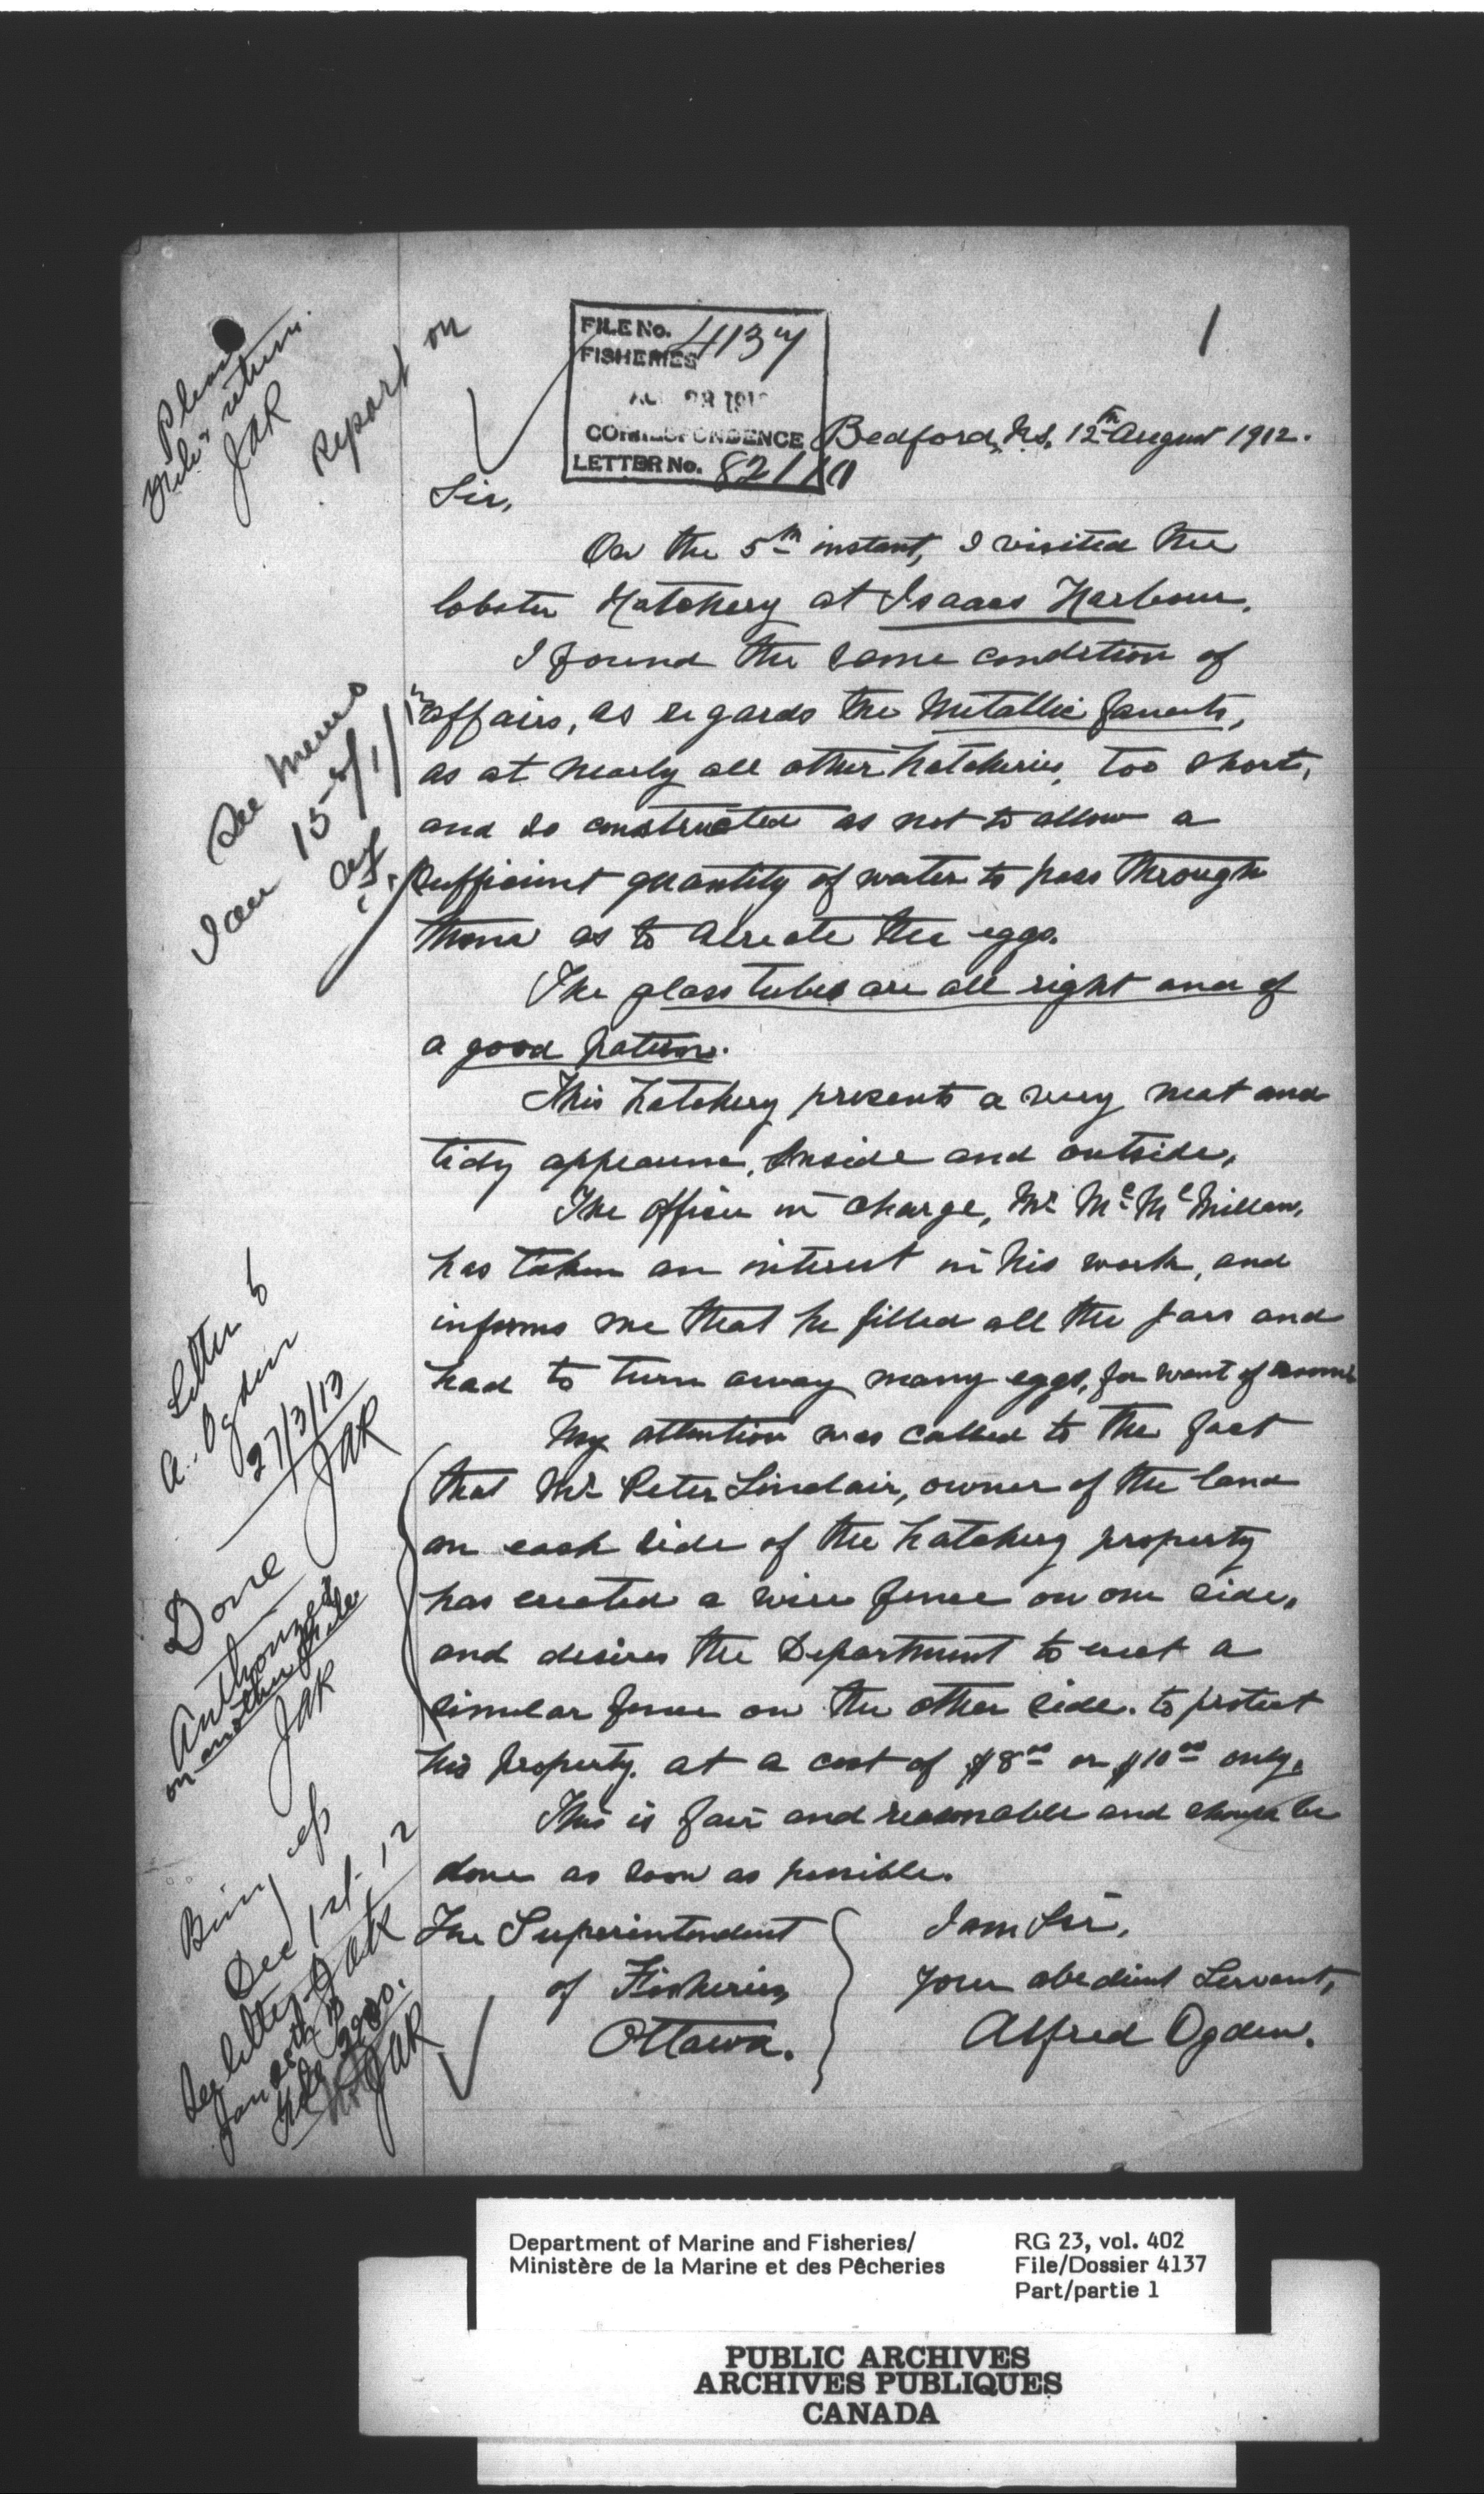 1
FILE No. 4137
FISHERIES
CORRESPONDENCE
LETTER No.
Please
file & return.
JAR
Report on
Bedford, N.S, 12th August 1912.
Sir,
On the 5th instant, I visited the
lobster Hatchery at Isaacs Harbour.
I found the same condition of
affairs, as regards the Metallic faucets,
as at nearly all other hatcheries, too short,
and so constructed as not to allow a
sufficient quantity of water to pass through
them as to aereate the eggs.
The glass tubes are all right and of
a good pattern.
This hatchery presents a very neat and
tidy appearance, inside and outside.
The officer in charge, Mr. Mc McMillan,
has taken an interest in his work, and
informs me that he filled all the jars and
had to turn away many eggs, for want of room.
My attention was called to the fact
that Mr. Peter Sinclair, owner of the land
on each side of the hatchery property
has erected a wire fence on one side,
and desires the Department to erect a
similar fence on the other side. to protect
his property. at a cost of $8.00 or $10.00 only.
This is fair and reasonable and should be
done as soon as possible.
The Superintendent
of Fisheries,
Ottawa.
I am Sir,
Your obedient Servant,
Alfred Ogden.
See memo
Jan 15
Letter to
A. Ogden
27/3/13
JAR
Done
Authorized
on another file
JAR
Bring up
Dec 1st. 12
JAR
See letter
Jan 28th
File
JAR
Department of Marine and Fisheries/
Ministère de la Marine et des Pêcheries
RG 23, vol. 402
File/Dossier 4137
Part/partie 1
PUBLIC ARCHIVES
ARCHIVES PUBLIQUES
CANADA